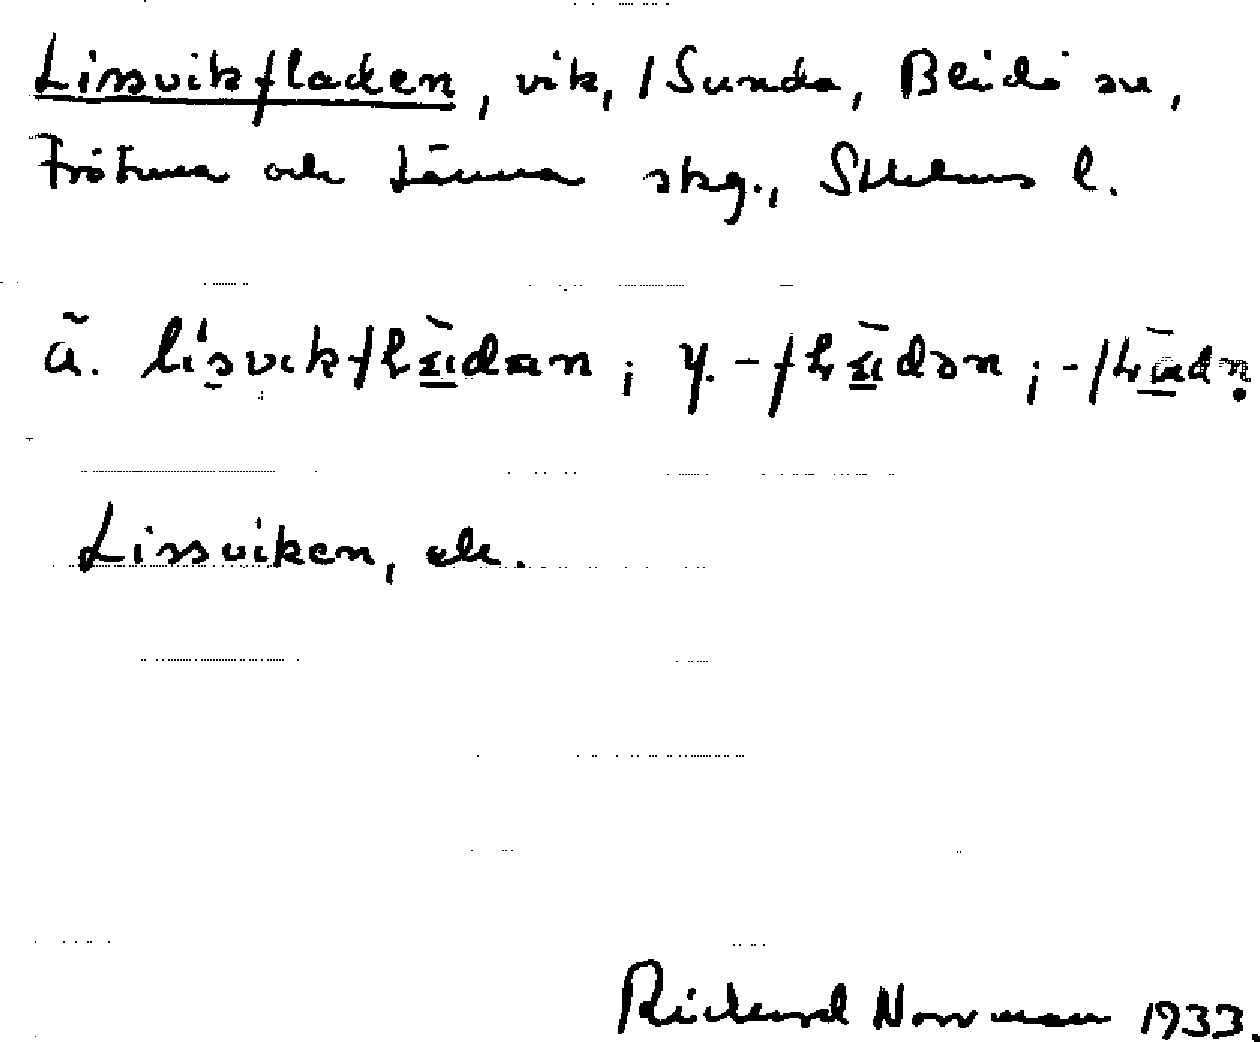 Lissvikfladen, vik, /Sunda, Blidö sn,
Frötuna och Länna skg., Sthlms l.
ä. lisvikfl͟a͟dan ; y. -fl͟a͟dən ; -fl͟a͟dn̥
Lissviken, etc.
Rickard Norrman 1933.